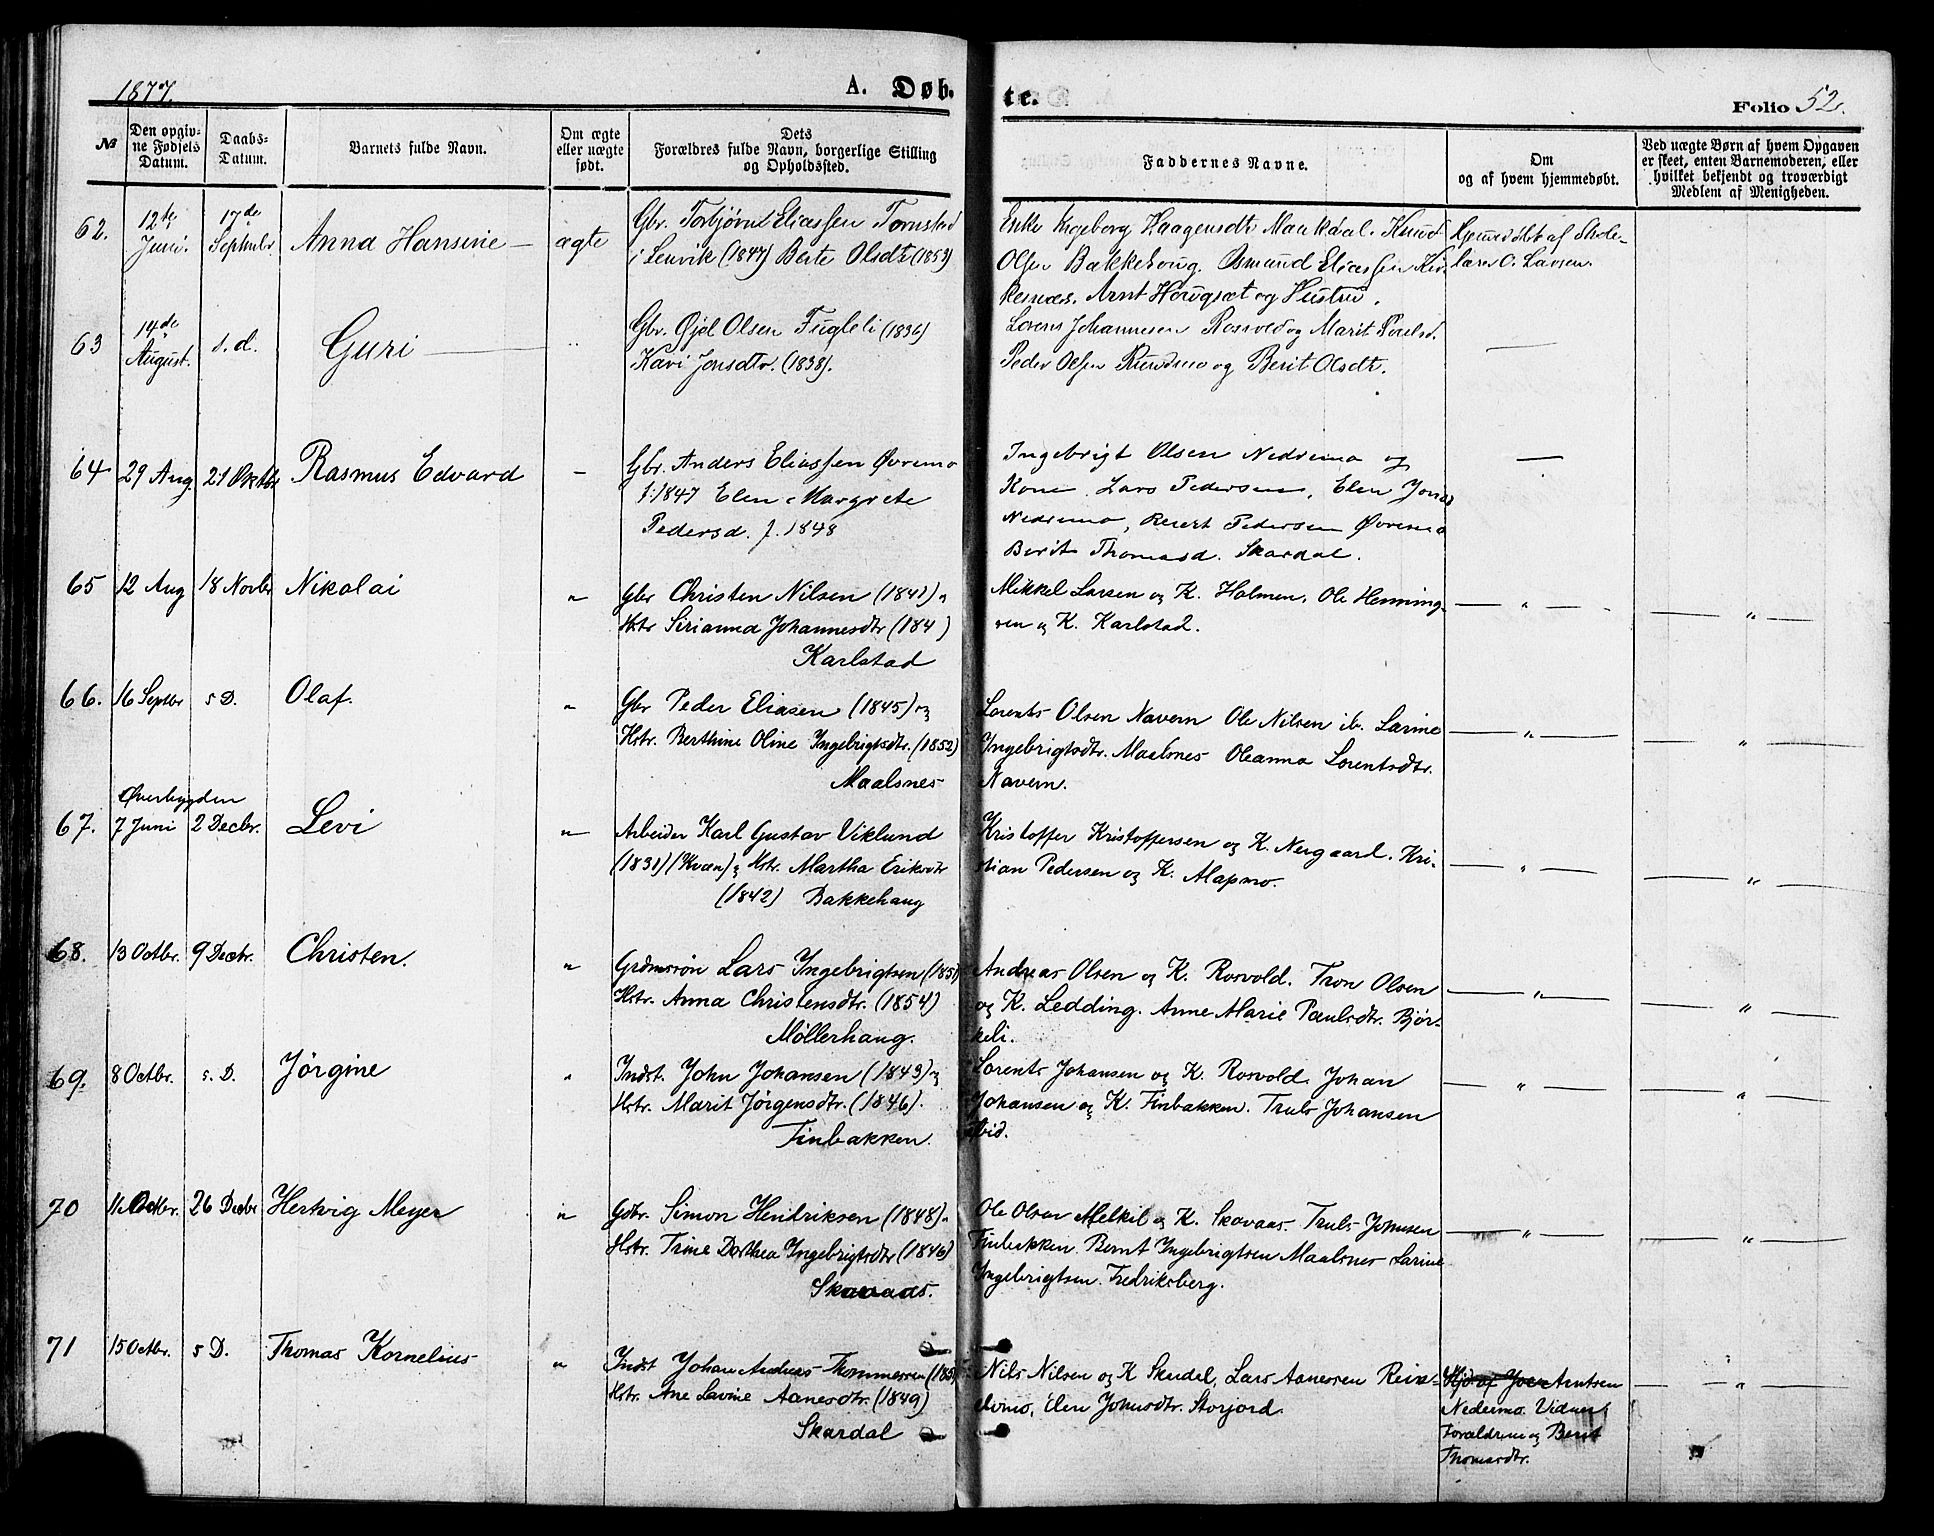 1877.
A. Døb.
te.
Folio 52.
№
Den opgiv-
ne Fødsels
Datum.
Daabs-
Datum.
Barnets fulde Navn.
Om ægte
eller uægte
født.
Dets
Forældres fulde Navn, borgerlige Stilling
og Opholdssted.
Faddernes Navne.
Om
og af hvem hjemmedøbt.
Ved uægte Børn af hvem Opgaven
er skeet, enten Barnemoderen, eller
hvilket bekjendt og troværdigt
Medlem af Menigheden.
62.
12te
Juni.
17de
Septbr
Anna Hansine
ægte
Gbr. Torbjørn Eliassen Tomstad
i Lenvik (1847) Berte Olsdtr (1853)
Enke Ingeborg Haagensdtr Maukdal. Knud
Olsen Bakkehaug. Osmund Eliassen Kir-
kesnæs. Arnt Hougsæt og Hustru.
Hjemmedøbt af Skole-
lærer O. Larsen.
63
14de
August.
s.d.
Guri
Gbr. Gjøl Olsen Fugleli (1836)
Kari Jonsdtr. (1838).
Lorens Johannesen Rosvold og Marit
Peder Olsen Rundmo og Berit Olsdtr.
64
29 Aug.
21 Oktbr
Rasmus Edvard
Gbr. Anders Eliassen Øvremo
f. 1847 Elen Margrete
Pedersd. f. 1848
Ingebrigt Olsen Nedremo og
Kone. Lars Pedersen, Elen Jonsd
Nedremo, Beret Pedersen Øvremo
Berit Thomasd. Skardal.
65
12 Aug
18 Novbr
Nikolai
"
Gbr Christen Nilsen (1841) og
Hstr Sirianna Johannesdtr (184 )
Karlstad
Mikkel Larsen og K. Holmen, Ole Henning-
sen og K. Karlstad.
66.
16 Septbr
s D.
Olaf.
"
Gbr Peder Eliasen (1845) og
Hstr. Berthine Oline Ingebrigtsdtr. (1852)
Maalsnes
Lorents Olsen Navern Ole Nilsen ib. Larine
Ingebrigtsdtr. Maalsnes Oleanna Lorentsdtr.
Navern.
Øverbygden
67.
7 Juni
2 Decbr.
Levi
"
Arbeider Karl Gustav Viklund
(1831) (Kvæn) og Hstr. Martha Eriksdtr
(1842) Bakkehaug
Kristoffer Kristoffersen og K. Nergaard. Kri-
stian Pedersen og K. Alapmo.
68.
13 Octbr.
9 Decbr.
Christen.
"
Grdmsøn Lars Ingebrigtsen (1851)
Hstr. Anna Christensdtr. (1854)
Møllerhaug.
Andreas Olsen og K. Rosvold. Tron Olsen
og K. Ledding. Anne Marie Paulsdtr. Bjør-
keli.
69.
8 Octbr.
s. D.
Jørgine
"
Indst. John Johansen (1843) og
Hstr. Marit Jørgensdtr. (1846).
Finbakken.
Lorents Johansen og K. Rosvold. Johan
Johansen og K. Finbakken. Truls Johansen
ibid.
70
11 Octbr.
26 Decbr
Hertvig Meyer
"
Gdbr. Simon Hendriksen (1848) og
Hstr. Trine Dorthea Ingebrigtsdtr (1846)
Skavaas.
Ole Olsen Melkil og K. Skavaas. Truls Johnsen
Finbakken. Bernt Ingebrigtsen Maalsnes Larine
Ingebrigtsen. Fredriksberg.
71
15 Octbr.
s D.
Thomas Kornelius
"
Indst Johan Andreas Thommessen (185
Hstr. Ane Lavine Aanesdtr. (1849)
Skardal
Nils Nilsen og K Skudel, Lars Aanessen
Elen Johnsdtr. Storjord.
Hjd. af Arntsen
Nedremo. Vidner
Forældrene og Berit
Thomasdtr.